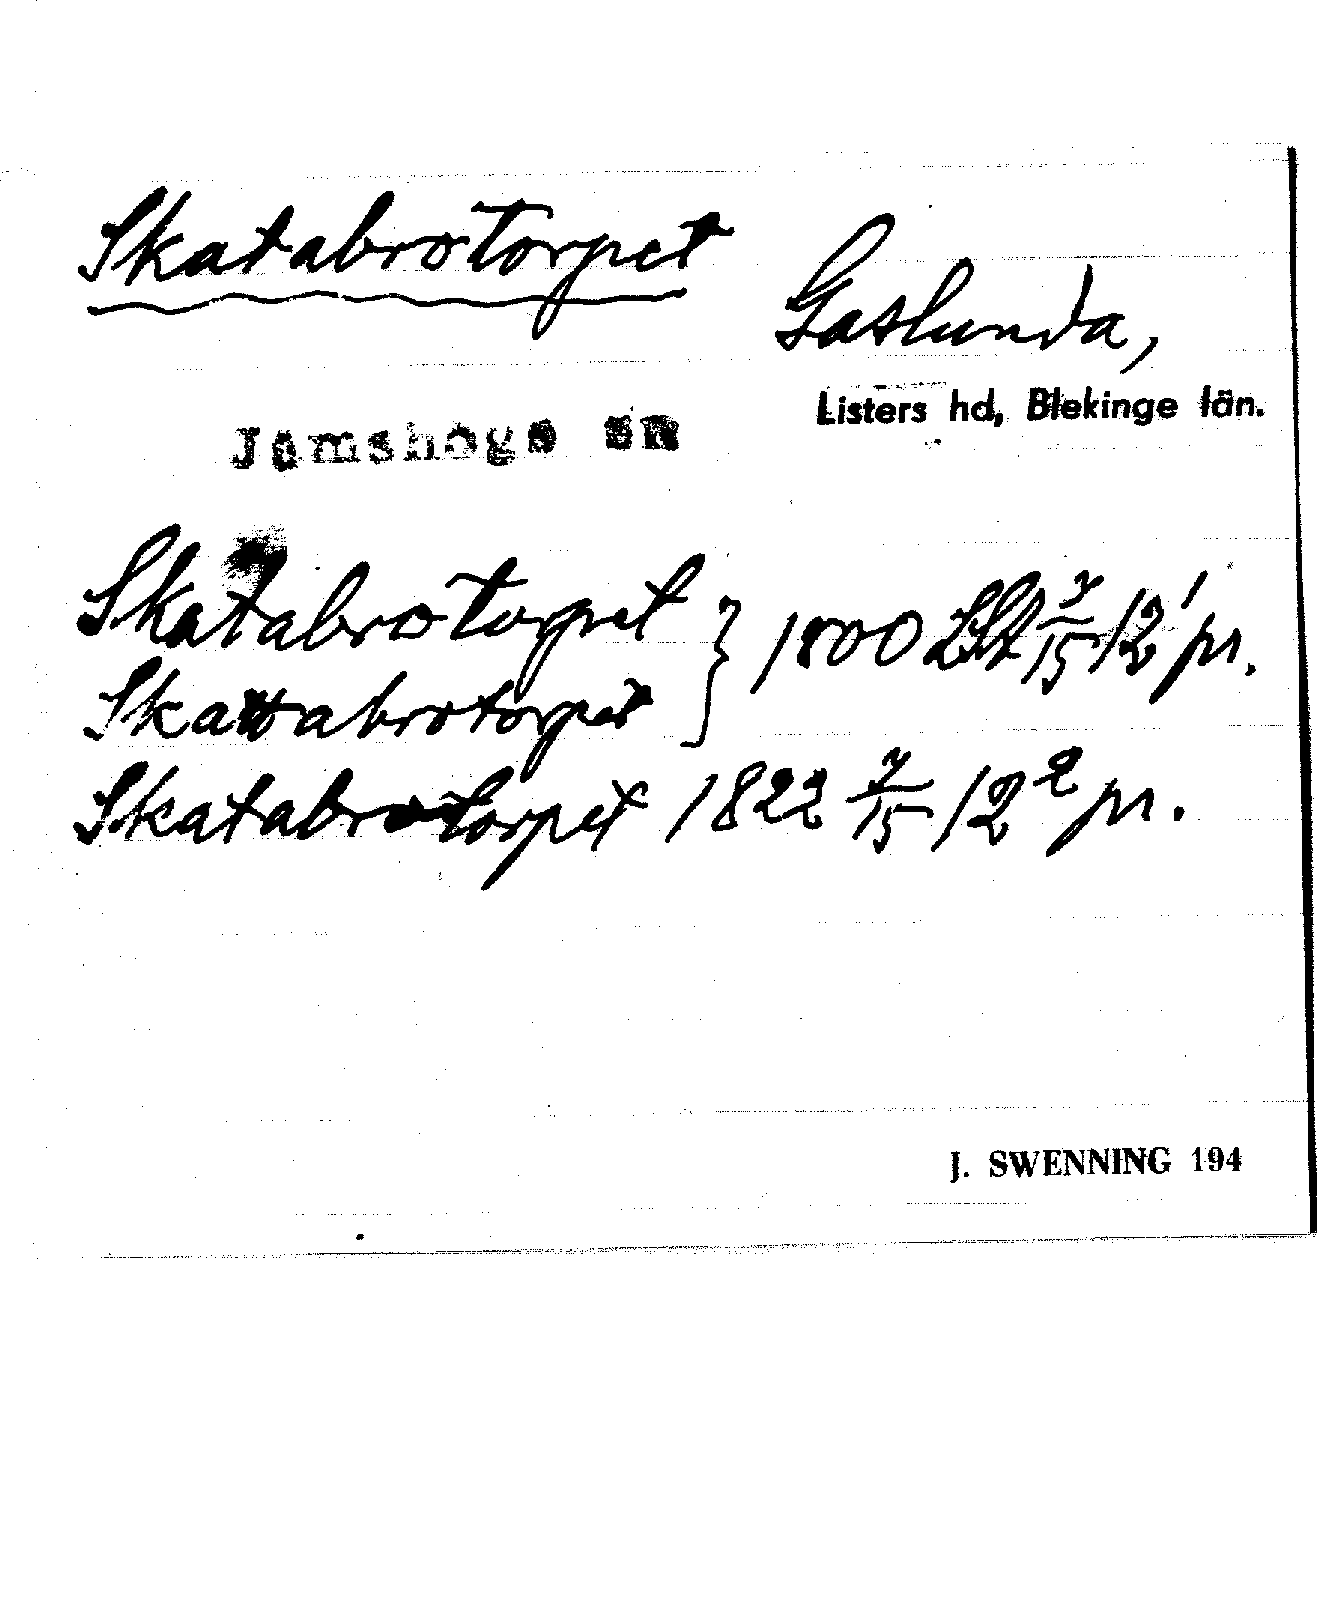 Skatabrotorpet
Gaslunda,
Listers hd, Blekinge län.
Jämshögs sn
Skatabrotorpet } 1800 LSt 7/15 12¹ pr.
Skattabrotorpet
Skatabrotorpet 1822 7/15 12² pr.
J. SWENNING 194